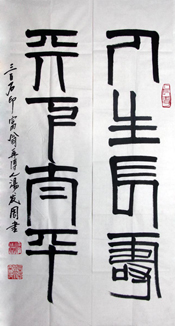 人生長壽
天下太平
三百石印富翁傳人湯發周書